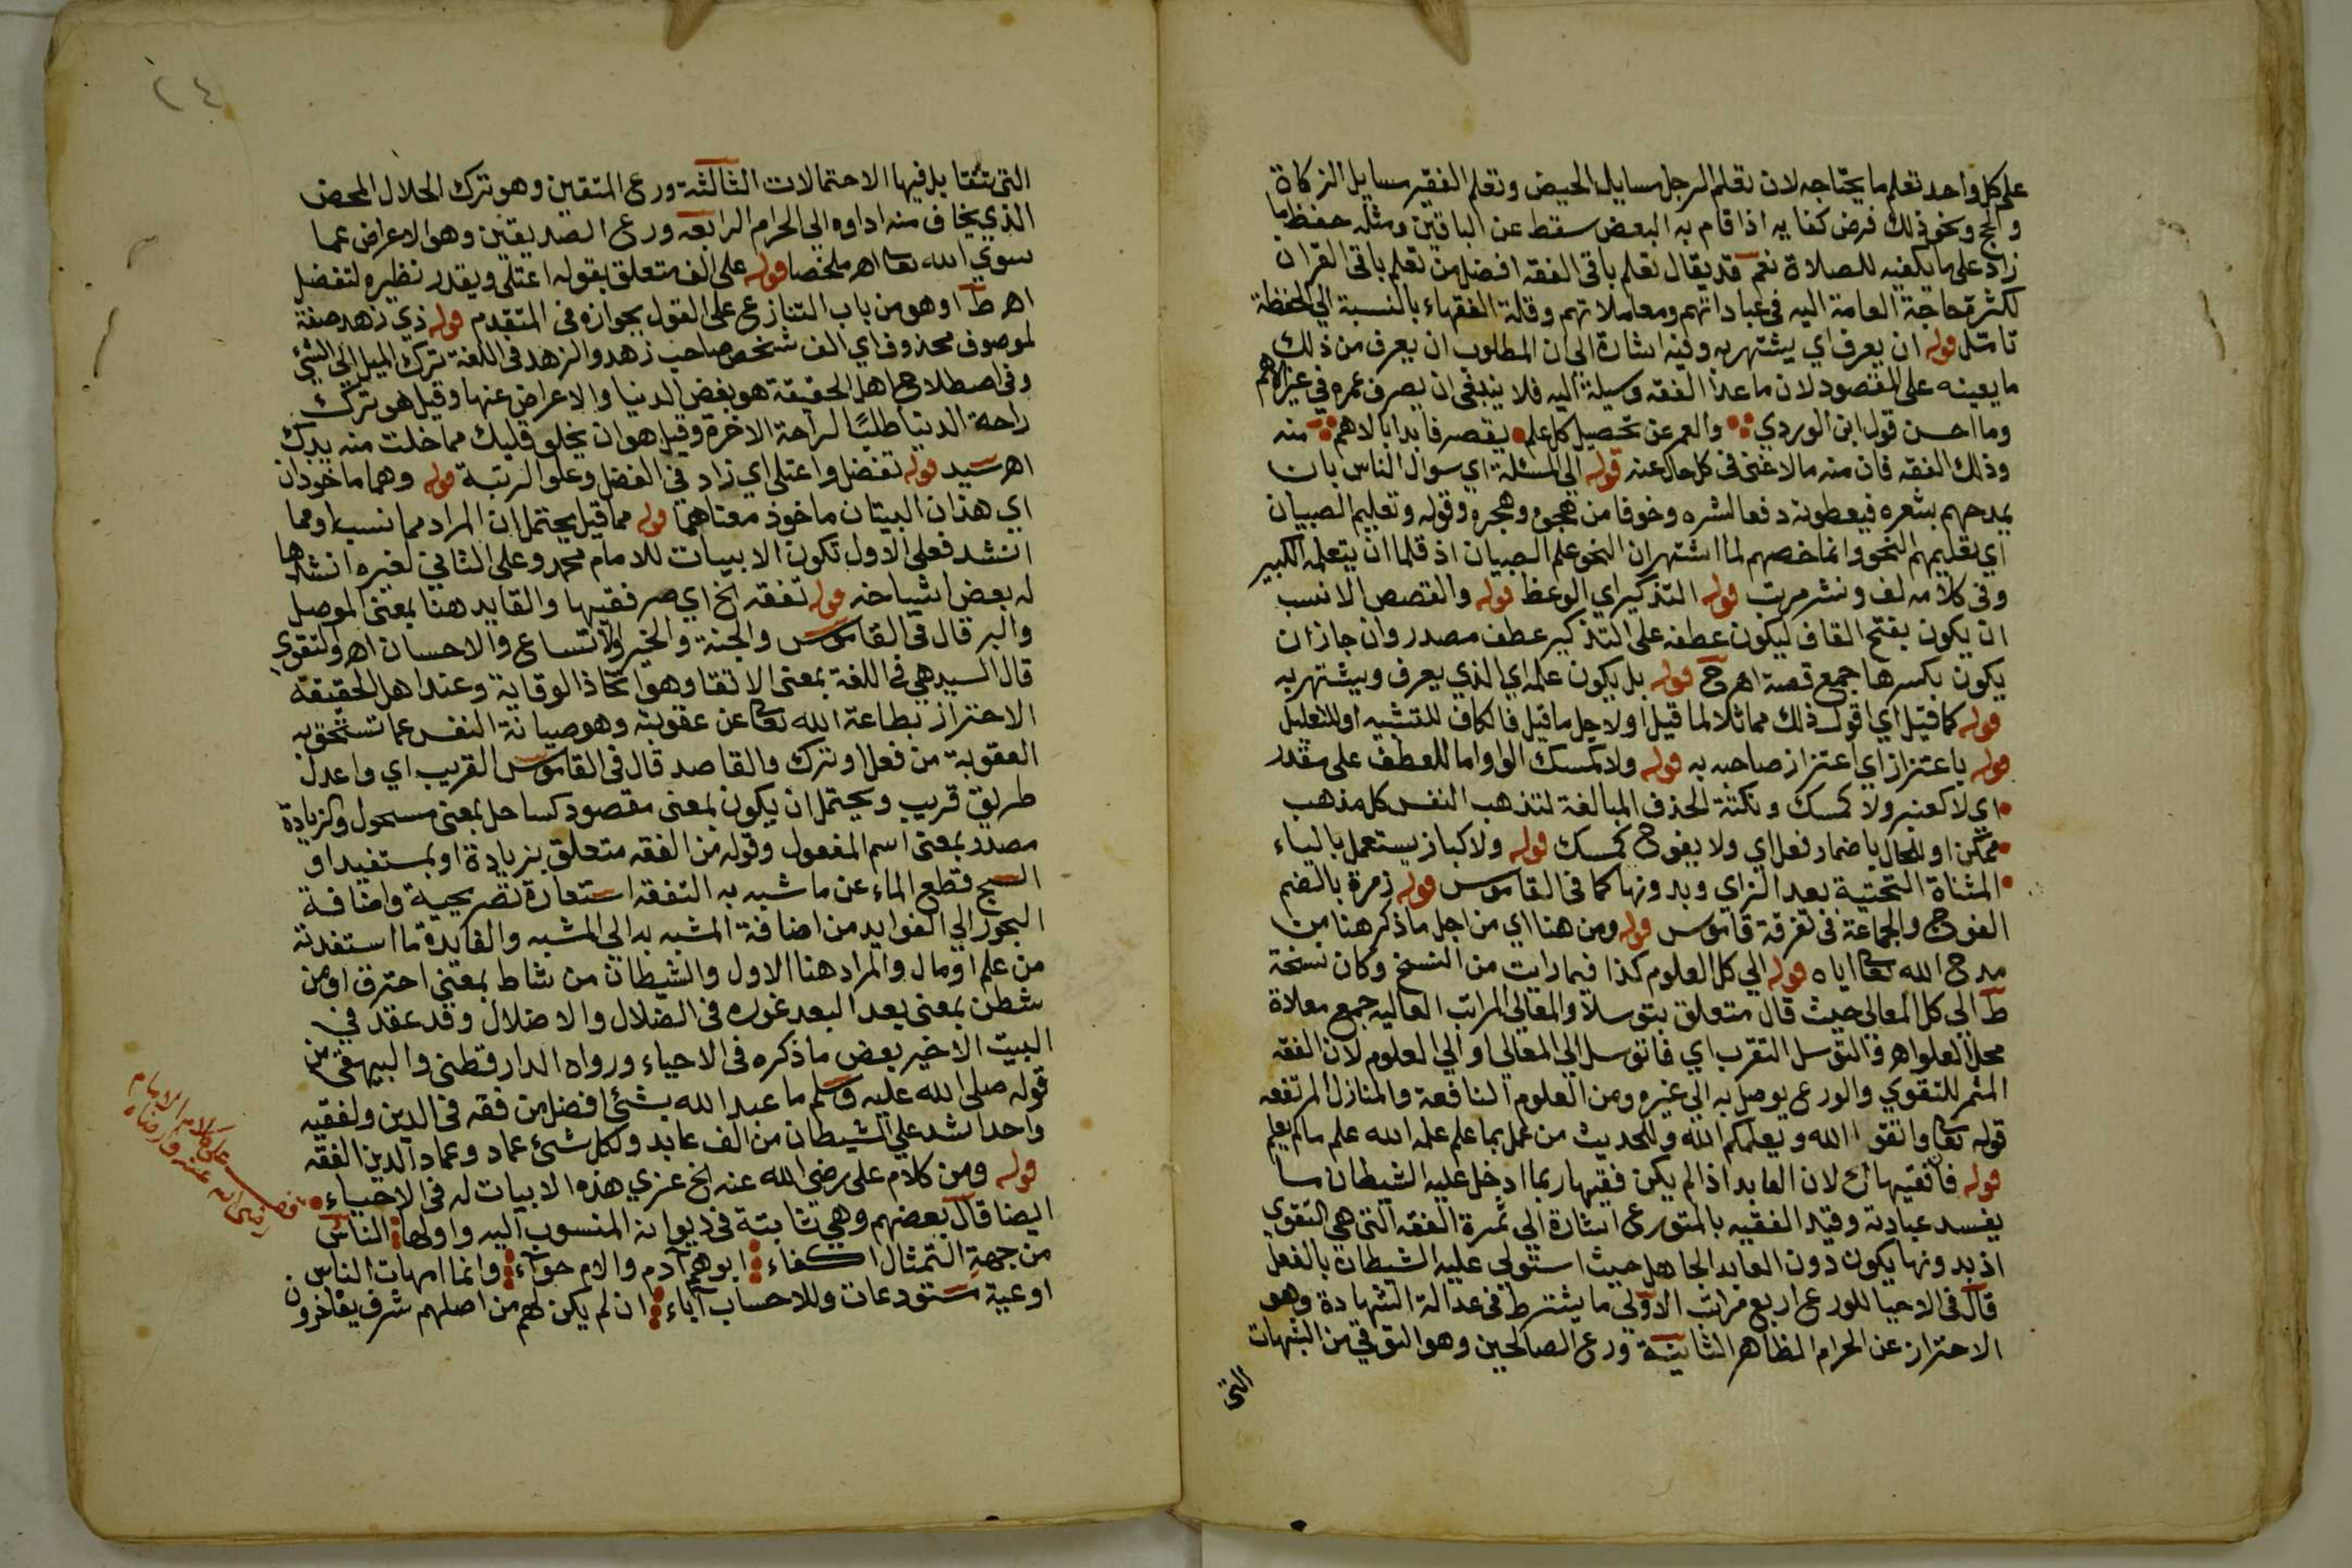 على كل واحد تعلم ما يحتاجه لان تعلم الرجل مسايل الحيض وتعلم الفقير مسايل الزكاة
والحج ونحو ذلك فرض كفايه اذا قام به البعض سقط عن الباقين ومثله حفظ ما
زاد على ما يكفيه للصلاة نعم قد يقال تعلم باقى الفقه افضل من تعلم باقى القران
لكثرة حاجة العامة اليه فى عباداتهم ومعاملاتهم وقلة الفقهاء بالنسبة الي الحفظة
تامل قوله ان يعرف اي يشتهر به وفيه اشارة الى ان المطلوب ان يعرف من ذلك
ما يعينه على المقصود لان ما عدا الفقه وسيلة اليه فلا ينبغى ان يصرف عمره في غير الاهم
وما احسن قول ابن الوردي والعمر عن تحصيل كل علم يقصر فابدا بالاهم منه
وذلك الفقه فان منه ما لا غنى فى كل حال عنه قوله الى المسئلة اي سوال الناس بان
يمدحهم بشعره فيعطونه دفعا لشره وخوفا من هجوه وهجره وقوله وتعليم الصبيان
اي تعليمهم النحو وانما خصهم لما اشتهر ان النحو علم الصبيان اذ قلما ان يتعلمه الكبير
وفى كلامه لف ونشر مرتب قوله التذكير اي الوعظ قوله والقصص الانسب
ان يكون بفتح القاف ليكون عطفه على التذكير عطف مصدر وان جاز ان
يكون بكسرها جمع قصة اهـ ح قوله بل يكون علمه اي الذي يعرف ويشتهر به
قوله كما قيل اي اقول ذلك مماثلا لما قيل او لاجل ما قيل فالكاف للتشبيه او للتعليل
قوله باعتزاز اي اعتزاز صاحبه به قوله ولا كمسك الواو اما للعطف على مقدر
اي لا كعنبر ولا كمسك ونكتة الحذف المبالغة لتذهب النفس كل مذهب
ممكن او للحال باضمار فعل اي ولا يفوح كمسك قوله ولا كباز يستعمل بالياء
المثناة التحتية بعد الزاي وبدونها كما فى القاموس قوله زمرة بالضم
الفوج والجماعة فى تفرقة قاموس قوله ومن هنا اي من اجل ما ذكر هنا من
مدح الله تعا اياه قوله الي كل العلوم كذا فيما رايت من النسخ وكان نسخة
ط الى كل المعالى حيث قال متعلق بتوسلا والمعالي المراتب العاليه جمع معلاة
محل العلو اهـ والتوسل التقرب اي فاتوسل الى المعالي او الي العلوم لان الفقه
المثمر للتقوي والورع يوصل به الي غيره ومن العلوم النافعة والمنازل المرتفعه
قوله تعا واتقوا الله ويعلمكم الله وللحديث من عمل بما علم علمه الله علم مالم يعلم
قوله فان فقيها الخ لان العابد اذا لم يكن فقيها ربما ادخل عليه الشيطان ما
يفسد عبادته وقيد الفقيه بالمتورع اشارة الي ثمرة الفقه التي هي التقوي
اذ بدونها يكون دون العابد الجاهل حيث استولى عليه الشيطان بالفعل
قال فى الاحيا للورع اربع مراتب الاولى ما يشترط فى عدالة الشهادة وهو
الاحتراز عن الحرام الظاهر الثانية ورع الصالحين وهو التوقي من الشبهات
التى
٢٤
التى تتقابل فيها الاحتمالات الثالثة ورع المتقين وهو ترك الحلال المحض
الذي يخاف منه اداوه الي الحرام الرابعه ورع الصديقين وهو الاعراض عما
سوي الله تعا اهـ ملخصا قوله على الف متعلق بقوله اعتلى ويقدر نظيره لتفضل
اهـ ط او هو من باب التنازع على القول بجوازه فى المتقدم قوله ذي زهد صفة
لموصوف محذوف اي الف شخص صاحب زهد والزهد فى اللغة ترك الميل الى الشئ
وفى اصطلاح اهل الحقيقة هو بغض الدنيا والاعراض عنها وقيل هو ترك
راحة الدنيا طلبًا لراحة الاخرة وقيل هو ان يخلو قلبك مما خلت منه يدك
اهـ سيد قوله تفضل واعتلى اي زاد في الفضل وعلو الرتبة قوله وهما ماخوذان
اي هذان البيتان ماخوذ معناهما قوله مما قيل يحتمل ان المراد مما نسب او مما
انشد فعلى الاول تكون الابيات للامام محمد وعلى الثاني لغيره انشدها
له بعض اشياخه قوله تفقه الخ اي صر فقيها والقايد هنا بمعنى الموصل
والبر قال فى القاموس والجنة والخير والاتساع والاحسان اهـ والتقوي
قال السيد هي فى اللغة بمعنى الاتقا وهو اتخاذ الوقاية وعند اهل الحقيقه
الاحتراز بطاعة الله تعا عن عقوبته وهو صيانة النفس عما تستحق به
العقوبة من فعل او ترك والقاصد قال فى القاموس القريب اي واعدل
طريق قريب ويحتمل ان يكون بمعنى مقصود كساحل بمعنى مسحول والزيادة
مصدر بمعنى اسم المفعول وقوله من الفقه متعلق بزيادة او بمستفيدا و
السبح قطع الماء عن ما شبه به التفقه استعارة تصريحية واضافة
البحور الي الفوايد من اضافة المشبه به الى المشبه والفايدة ما استفدته
من علم او مال والمراد هنا الاول والشيطان من شاط بمعنى احترق او من
شطن بمعنى بعد البعد غوره فى الضلال والاضلال وقد عقد في
البيت الاخير بعض ما ذكره فى الاحياء ورواه الدارقطنى والبيهقى من
قوله صلى الله عليه وسلم ما عبد الله بشئ افضل من فقه فى الدين ولفقيه
واحد اشد علي الشيطان من الف عابد ولكل شئ عماد وعماد الدين الفقه
قوله ومن كلام على رضى الله عنه الخ عزي هذه الابيات له فى الاحياء
ايضا قال بعضهم وهي ثابتة فى ديوانه المنسوب اليه واولها الناس
من جهة التمثال اكفاء ابوهم آدم والام حوآء وانما امهات الناس
اوعية مستودعات وللاحساب آباء ان لم يكن لهم من اصلهم شرف يفاخرون
على كلام الامام
رضى الله عنه وارضاه